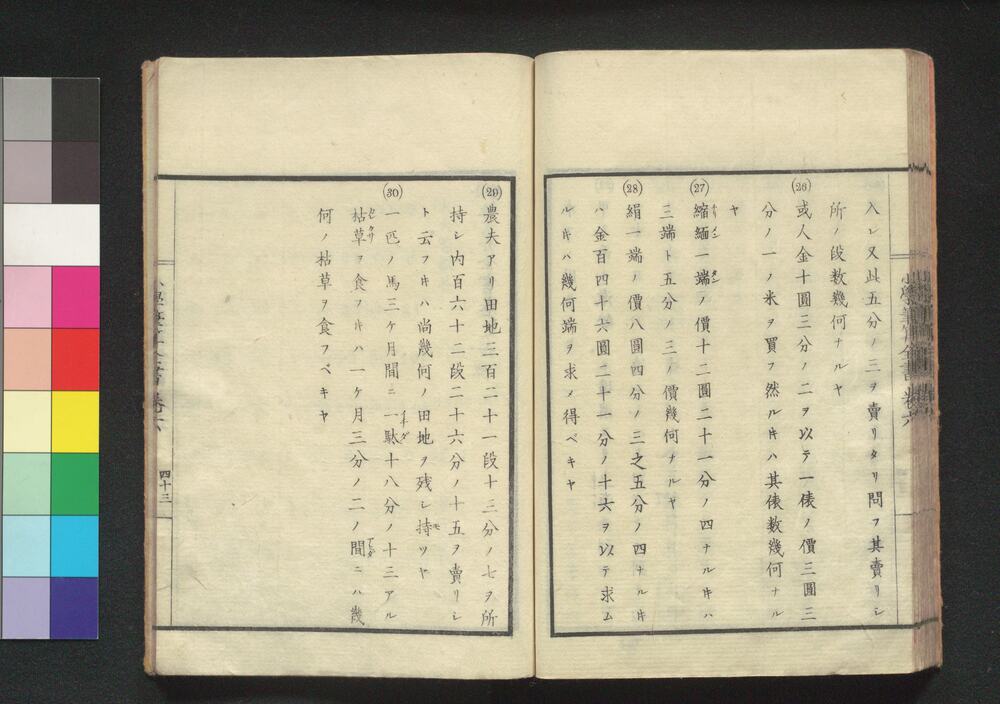 入レ又此五分ノ三ヲ賣リタリ問フ其賣リシ
所ノ段数幾何ナルヤ
(26)
或人金十圓三分ノ二ヲ以テ一俵ノ價三圓三
分ノ一ノ米ヲ買フ然ル𪜈ハ其俵数幾何ナル
ヤ
(27)
縮緬一端ノ價十二圓二十一分ノ四ナル𪜈ハ
三端ト五分ノ三ノ價幾何ナルヤ
(28)
絹一端ノ價八圓四分ノ三之五分ノ四ナル𪜈
ハ金百四十六圓二十一分ノ十六ヲ以テ求ム
ル𪜈ハ幾何端ヲ求メ得ベキヤ
(29)
農夫アリ田地三百二十一段十三分ノ七ヲ所
持シ内百六十二段二十六分ノ十五ヲ賣リシ
ト云フ𪜈ハ尚幾何ノ田地ヲ残シ持ツヤ
(30)
一匹ノ馬三ケ月間ニ一駄十八分ノ十三アル
枯草ヲ食フ𪜈ハ一ケ月三分ノ二ノ間ニハ幾
何ノ枯草ヲ食フベキヤ
四十三